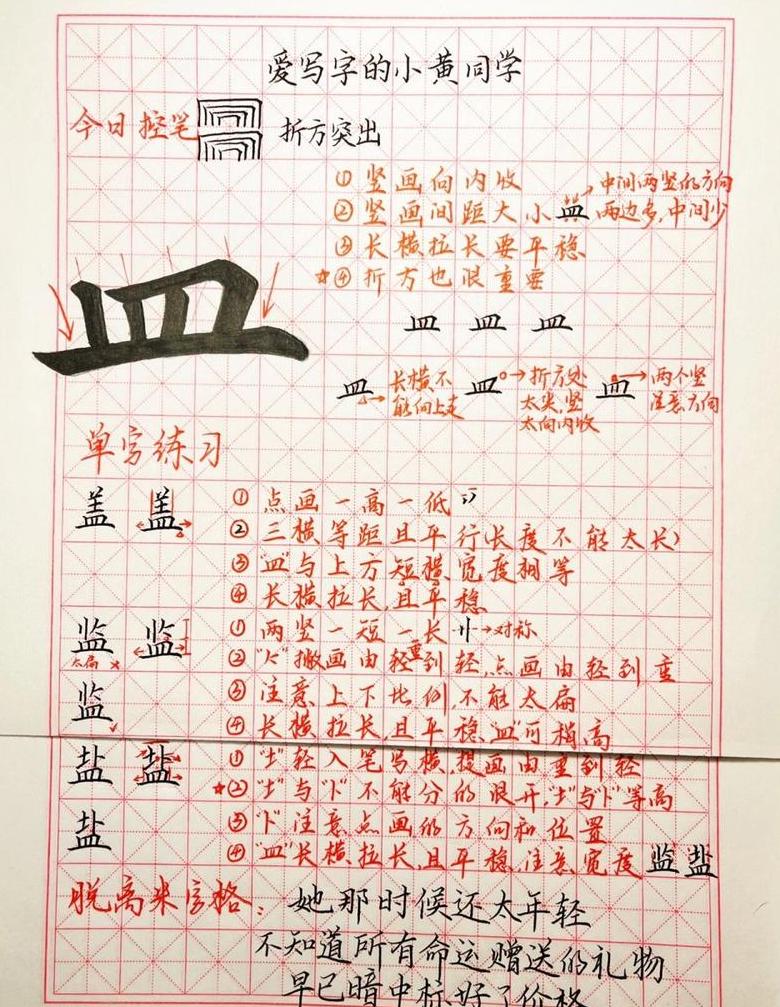 爱写字的小黄同学
今日控笔 折方突出
①竖画向内收
②竖画间距大小皿 两边多,中间少
中间两竖的方向
③长横拉长要平稳
☆④折方也很重要
皿
皿皿皿
皿 长横不能向上走
皿 折方处太尖,竖太向内收
皿 两个竖注意方向
单字练习
盖盖 ①点画一高一低
②三横等距且平行(长度不能太长)
③“皿”与上方短横宽度相等
④长横拉长,且平稳
监监 ①两竖一短一长 →对称
太扁 ×
②“𠂉”撇画由重到轻,点画由轻到重
监 ③注意上下比例,不能太扁
④长横拉长,且平稳“皿”可稍高
盐盐 ①“土”轻入笔写横,提画由重到轻
☆②“土”与“卜”不能分的很开,“土”与“卜”等高
盐 ③“卜”注意点画的方向和位置
④“皿”长横拉长,且平稳,注意宽度 监盐
脱离米字格:她那时候还太年轻
不知道所有命运赠送的礼物
早已暗中标好了价格